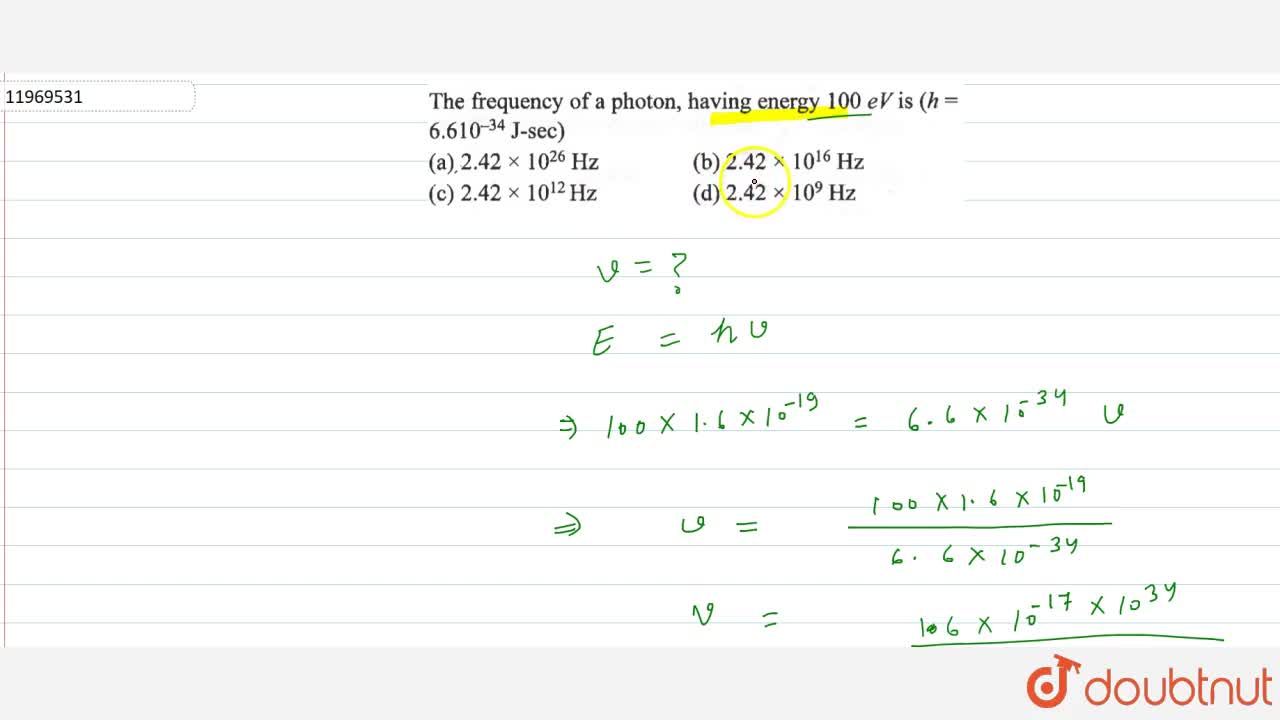 11969531
The frequency of a photon, having energy 100 eV is (h =
6.610⁻³⁴ J-sec)
(a) 2.42 × 10²⁶ Hz (b) 2.42 × 10¹⁶ Hz
(c) 2.42 × 10¹² Hz (d) 2.42 × 10⁹ Hz
ν = ?
E = hν
⇒ 100 × 1.6 × 10⁻¹⁹ = 6.6 × 10⁻³⁴ ν
⇒ ν = 100 × 1.6 × 10⁻¹⁹
6.6 × 10⁻³⁴
ν = 1.6 × 10⁻¹⁷ × 10³⁴
doubtnut